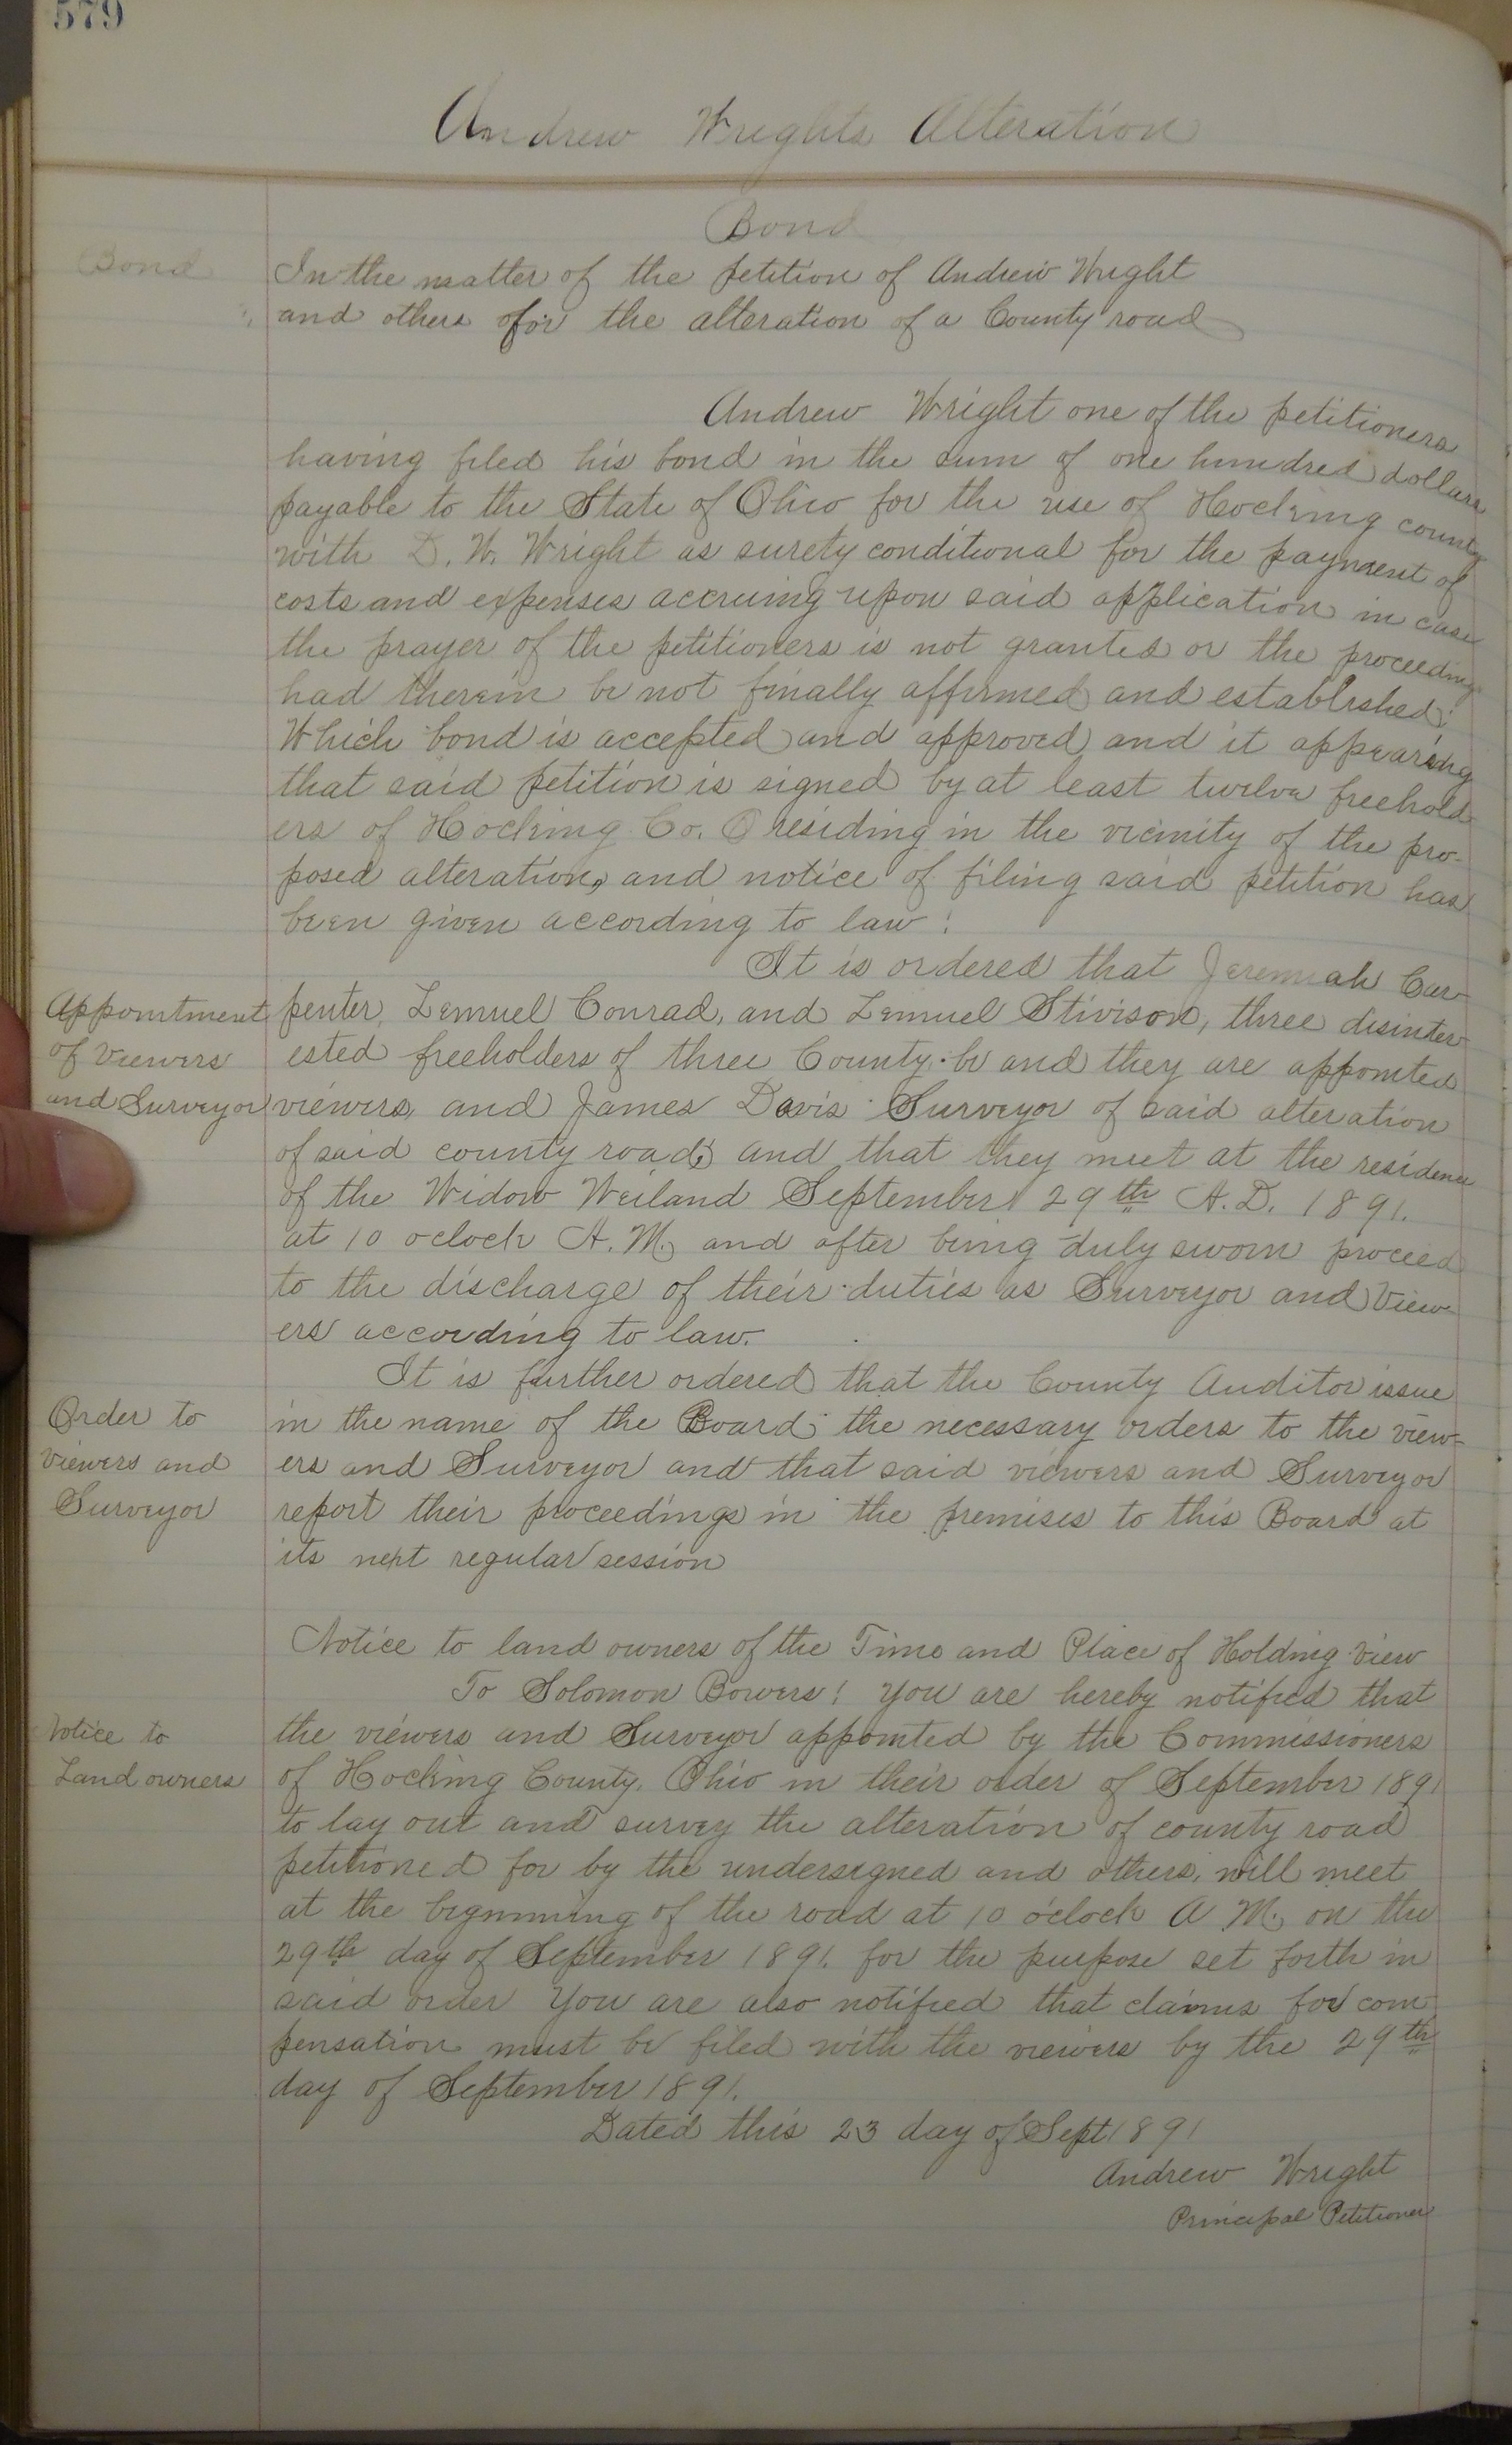 579
Andrew Wrights Alteration
Bond
Bond
In the matter of the petition of Andrew Wright
and others ofor the alteration of a County road
Andrew Wright one of the petitioners
having filed his bond in the sum of one hundred dollars
payable to the State of Ohio for the use of Hocking county
with D. W. Wright as surety conditional for the payment of
costs and expenses accruing upon said application in case
the prayer of the petitioners is not granted or the proceedings
had therein be not finally affirmed and established;
Which bond is accepted and approved and it appearing
that said petition is signed by at least twelve freehold-
ers of Hocking Co. O residing in the vicinity of the pro-
posed alteration, and notice of filing said petition has
been given according to law:
It is ordered that Jeremiah Car-
Appointment
of Viewers
and Surveyor
penter, Lemuel Conrad, and Lemuel Stivison, three disinter-
ested freeholders of three County be and they are appointed
viewers, and James Davis Surveyor of said alteration
of said county road; and that they meet at the residence
of the Widow Weiland September 29th A.D. 1891.
at 10 oclock A.M. and after being duly sworn proceed
to the discharge of their duties as Surveyor and View-
ers according to law.
It is further ordered that the County Auditor issue
Order to
viewers and
Surveyor
in the name of the Board the necessary orders to the view-
ers and Surveyor and that said viewers and Surveyor
report their proceedings in the premises to this Board at
its next regular session
Notice to land owners of the Time and Place of Holding View
To Solomon Bowers! You are hereby notified that
Notice to
Land owners
the viewers and Surveyor appointed by the Commissioners
of Hocking County, Ohio in their order of September 1891
to lay out and survey the alteration of county road
petitioned for by the undersigned and others, will meet
at the beginning of the road at 10 o'clock A M, on the
29th day of September 1891. for the purpose set forth in
said order You are also notified that claims for com-
pensation must be filed with the viewers by the 29th
day of September 1891.
Dated this 23 day of Sept 1891
Andrew Wright
Principal Petitioner